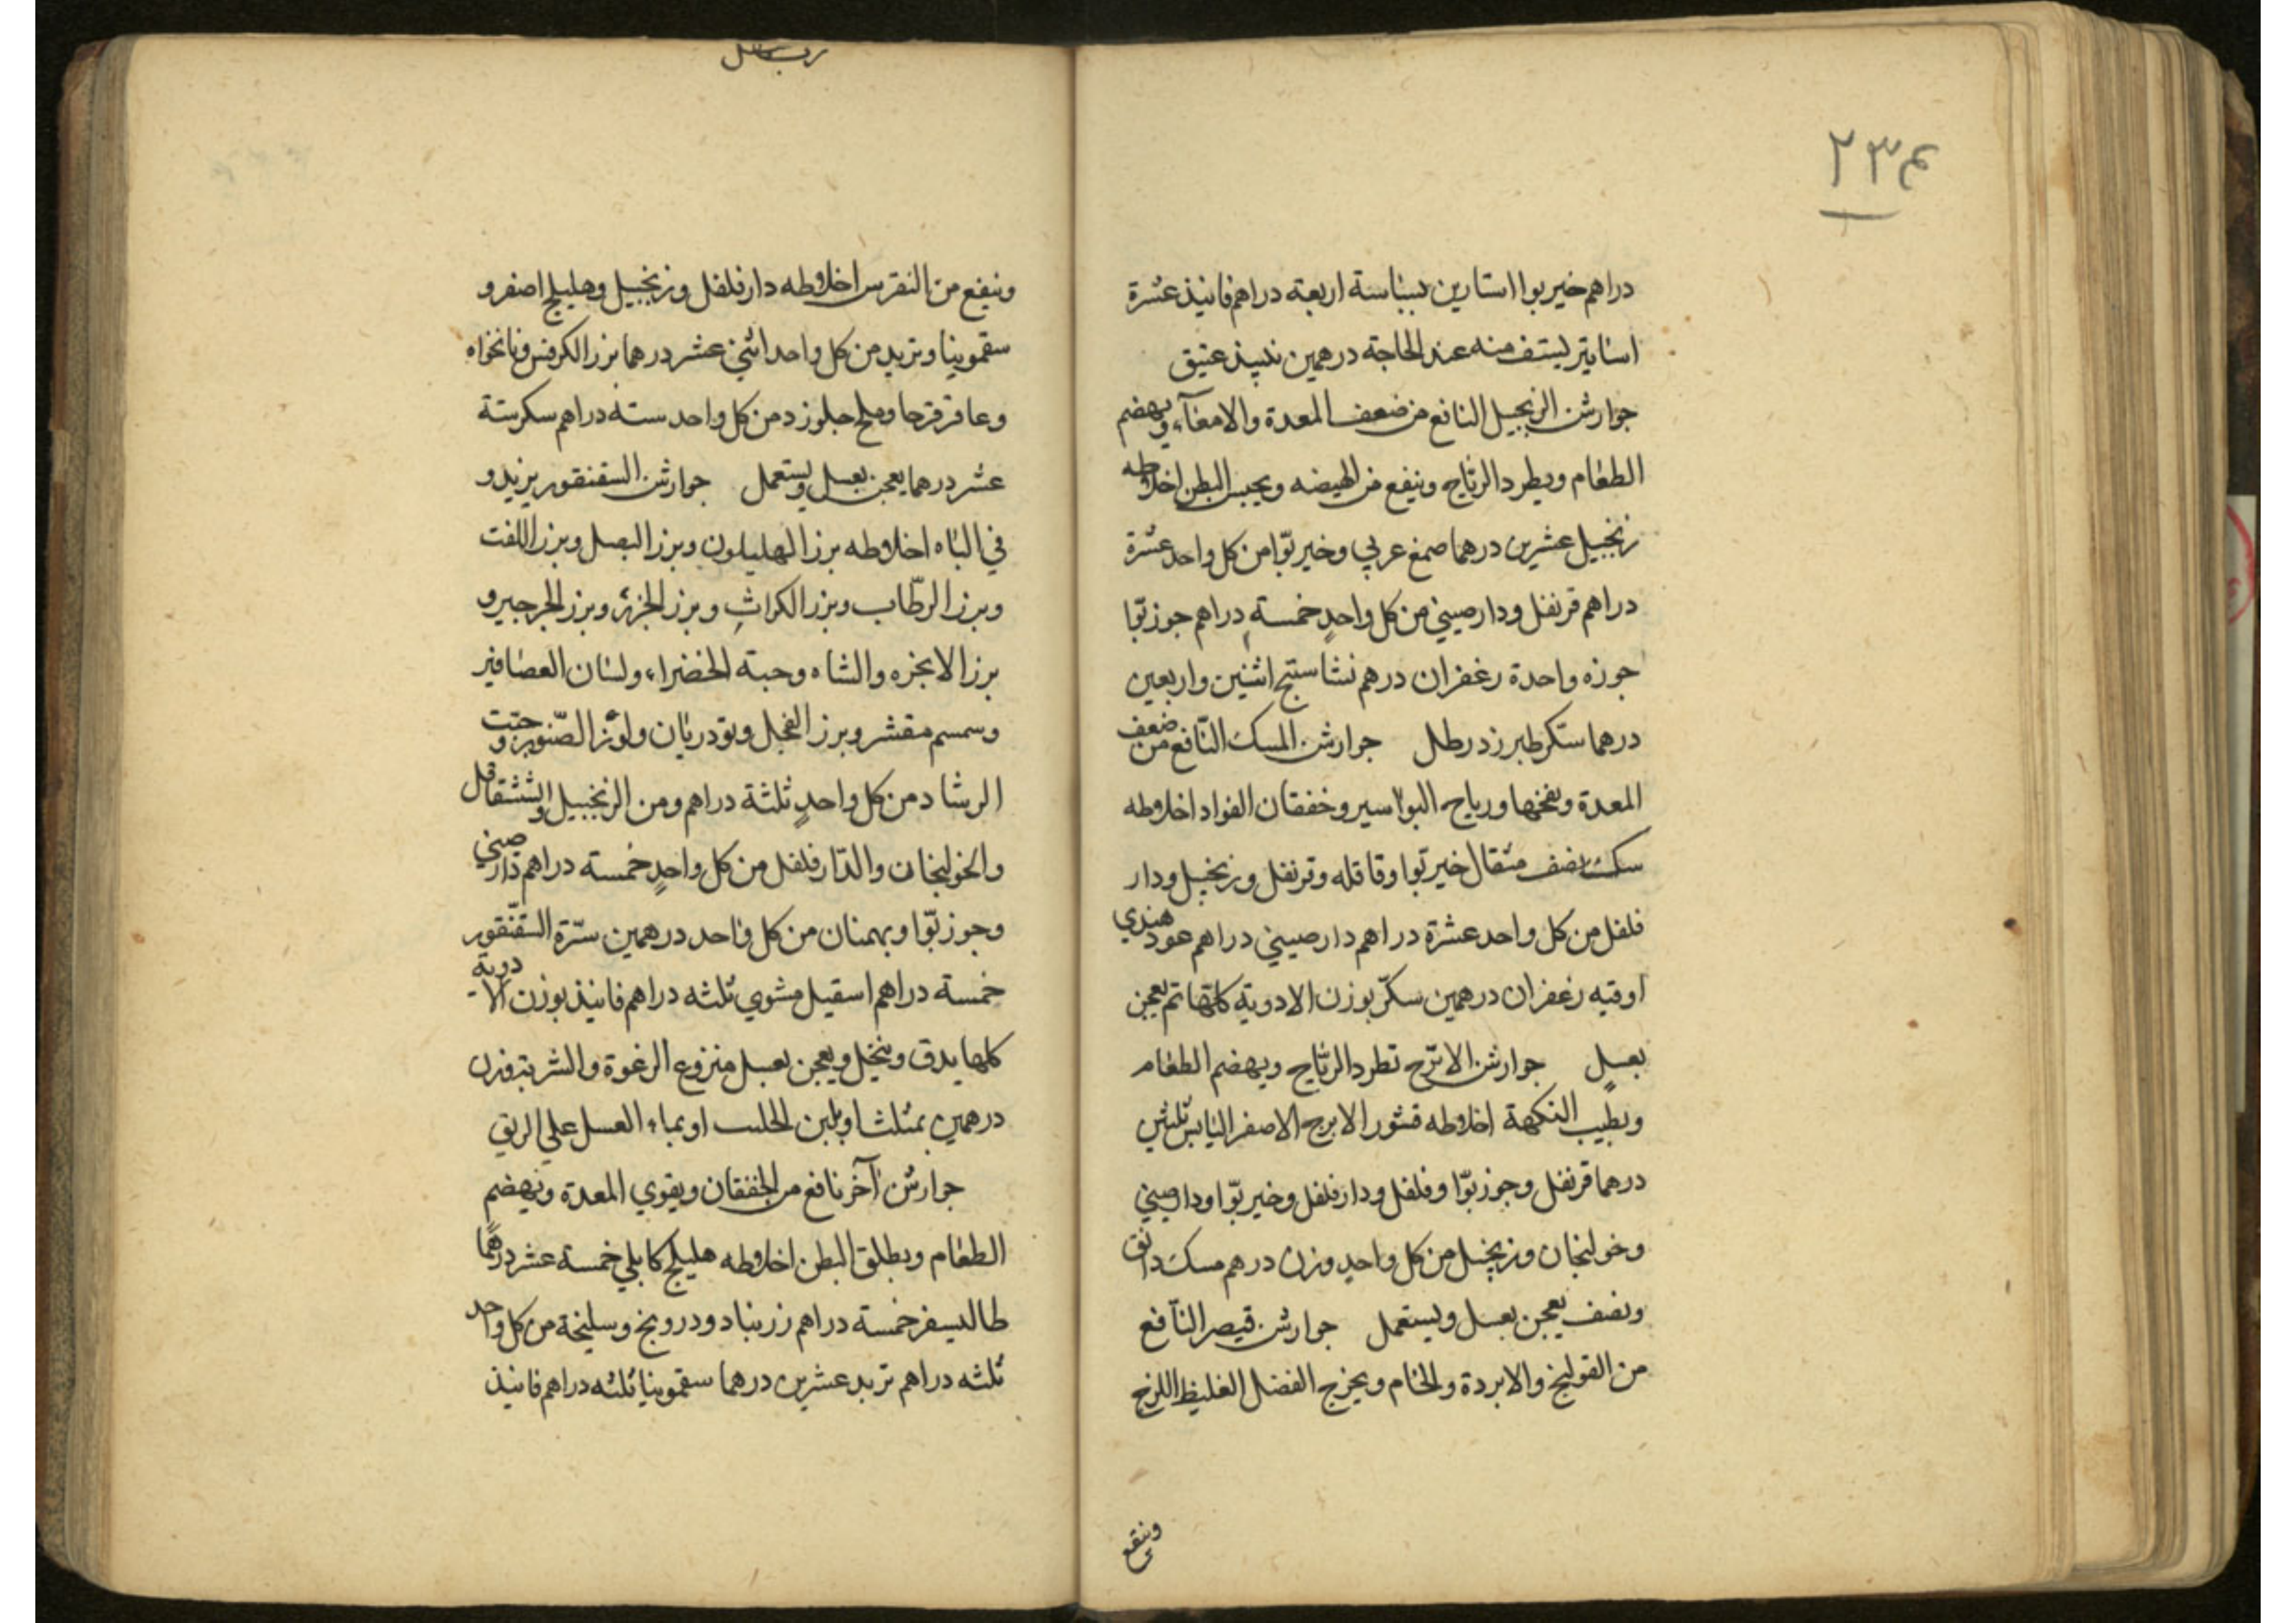 ٢٣٤
دراهم خير بوا استارين بسباسة اربعة دراهم فانيذ عشرة
اساتير يستف منه عند الحاجة درهمين نبيذ عتيق
جوارشن الزنجبيل النافع من ضعف المعدة والامعآء ويهضم
الطعام ويطرد الرياح وينفع من الهيضه ويحبس البطن اخلاطه
زنجبيل عشرين درهما صمغ عربي وخير بوّا من كل واحد عشرة
دراهم قرنفل ودارصيني من كل واحدٍ خمسةٍ دراهم جوز بوّا
جوزه واحدة زعفران درهم نشاستج اثنين واربعين
درهما سكر طبرزد رطل جوارشن المسك النّافع من ضعف
المعدة ونفخها ورياح البواسير وخفقان الفواد اخلاطه
سك نصف مثقال خير بوا وقاقله وقرنفل وزنجبيل ودار
فلفل من كل واحد عشرة دراهم دارصيني دراهم عود هندي
اوقيه زعفران درهمين سكّر بوزن الادوية كلها تم يعجن
بعسلٍ جوارشن الاترّج تطرد الرياح ويهضم الطعام
ويطيب النكهة اخلاطه قشور الاترج الاصفر اليابس ثلثين
درهما قرنفل وجوز بوّا وفلفل ودارفلفل وخير بوّا ودارصيني
وخولنجان وزنجبيل من كل واحدٍ وزن درهم مسك دانق
ونصف يعجن بعسل ويستعمل جوارشن قيصر النّافع
من القولنج والابردة والخام ويخرج الفضل الغليظ اللزج
وينفع
وينفع من النقرس اخلاطه دارفلفل وزنجبيل وهليلج اصفر و
سقمونيا وتربد من كل واحد اثني عشر درهما بزر الكرفس ونانخواه
وعاقرقرحا وملح جلوزد من كل واحد ستة دراهم سكر ستة
عشر درهما يعجن بعسل ويستعمل جوارشن السقنقور يزيد و
في الباه اخلاطه بزر الهليلون وبزر البصل وبزر اللفت
وبزر الرطّاب وبزر الكراثِ وبزر الجزر وبزر الجرجير و
بزر الانجره والشاه وحبة الخضراء ولسان العصافير
وسمسم مقشر وبزر الفجل وتودريان ولوز الصّنوبر وحبّ
الرشاد من كل واحدٍ ثلثة دراهم ومن الزنجبيل والششقاقل
والخولنجان والدّارفلفل من كل واحدٍ خمسة دراهم دارصيني
وجوز بوّا وبهمنان من كل واحد درهمين سرّة السّقنقور
خمسة دراهم اسقيل مشوي ثلثه دراهم فانيذ بوزن الادوية
كلها يدق وينخل ويعجن بعسل منزوع الرغوة والشربة وزن
درهمين بمثلث او بلبن الحليب او بماء العسل علي الريق
جوارشن آخر نافع من الخفقان ويقوي المعدة ويهضم
الطعام ويطلق البطن اخلاطه هليلج كابلي خمسة عشر درهمًا
طاليسفر خمسة دراهم زرنباد ودرونج وسليخة من كل واحد
ثلثه دراهم تربد عشرين درهما سقمونيا ثلثه دراهم فانيذ